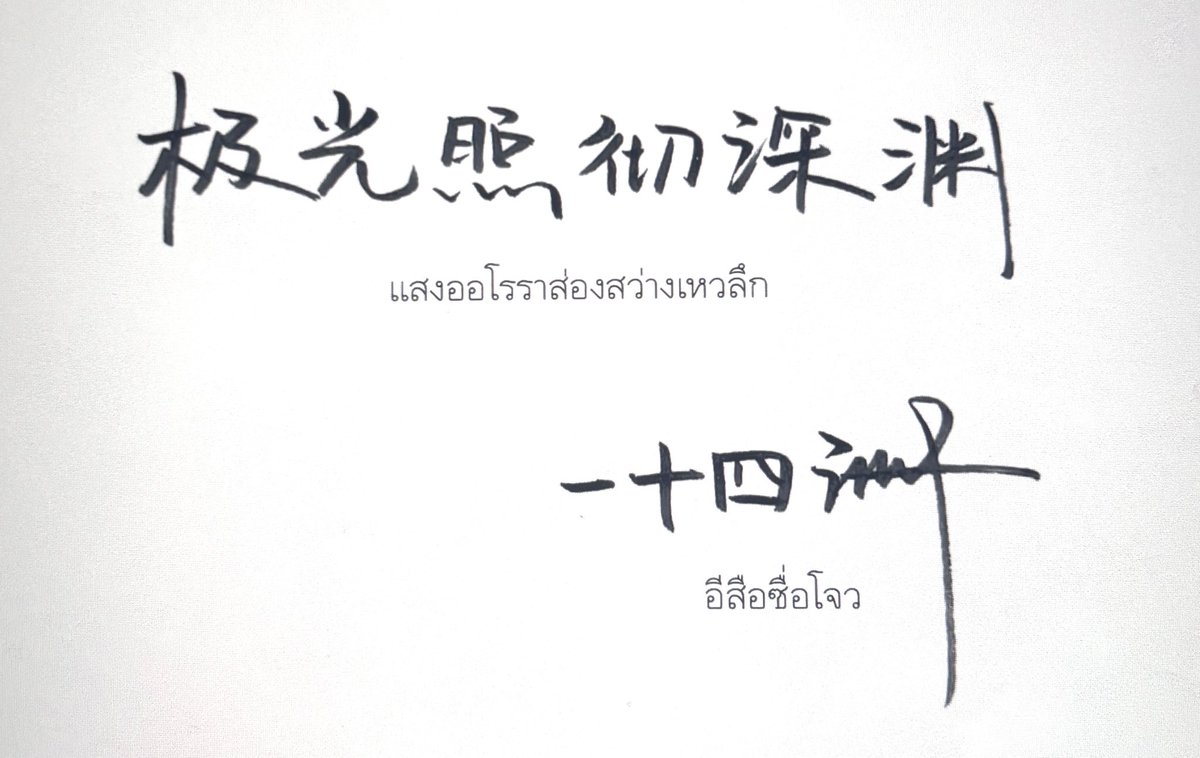 极光照彻深渊
แสงออโรราส่องสว่างเหวลึก
一十四洲
อีสือซื่อโจว